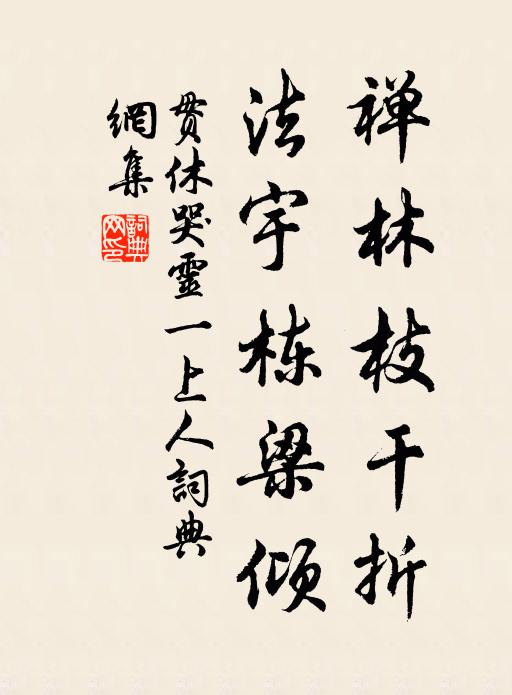 禅林枝干折
法宇栋梁倾
贯休哭靈一上人詞典
網集
詞典网印